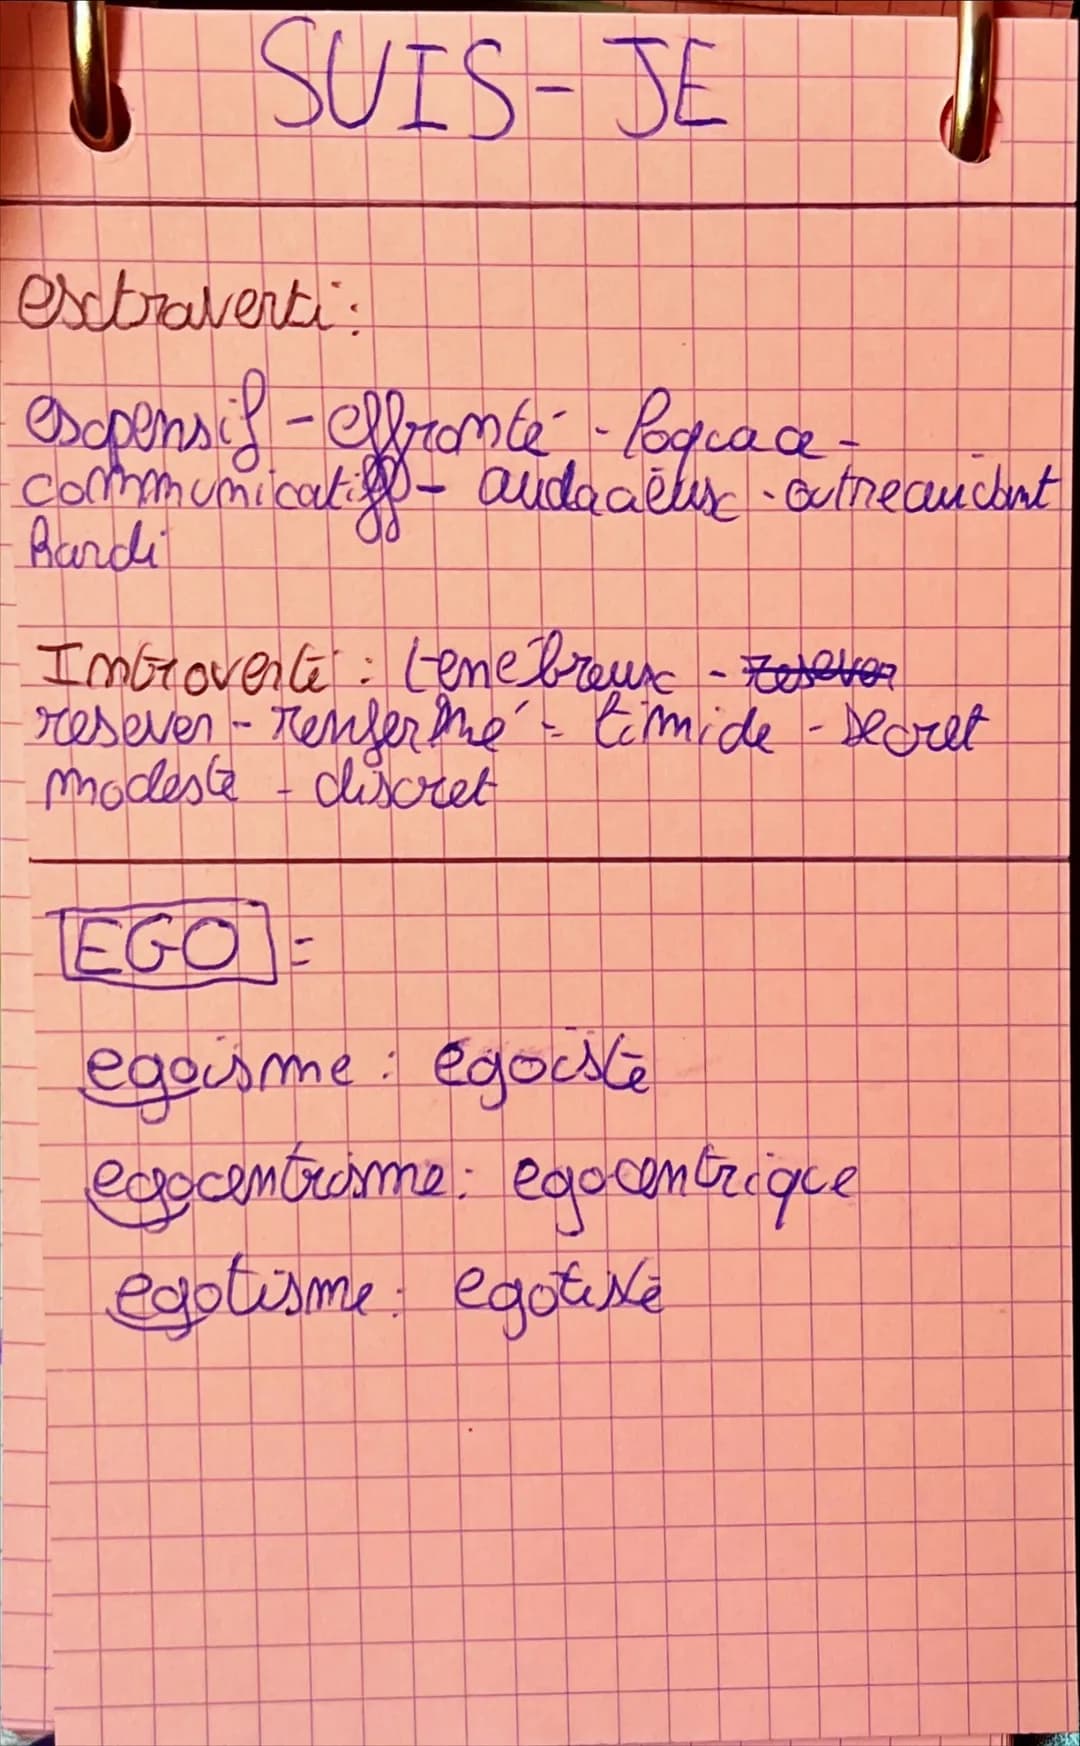 SUIS-JE
extraverti :
expensif - effronté - loquace -
communicatif - audacieux - outrecuidant
hardi
Introverti : ténébreux -
resever - renfermé - timide - secret
modeste - discret
EGO =
egoisme : égoïste
egocentrisme : egocentrique
egotisme : egotiste